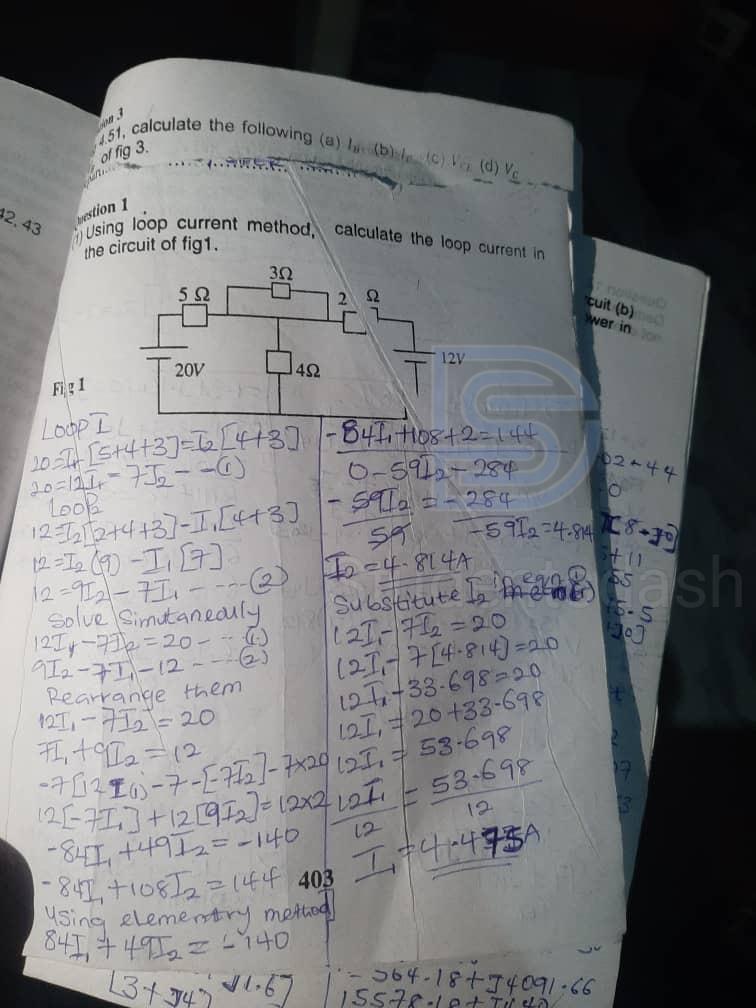 4.51, calculate the following (a) (b) (c) (d) Vc
of fig 3.
Question 1
(1) Using loop current method, calculate the loop current in
the circuit of fig1.
3Ω
5 Ω
2 Ω
20V
4Ω
12V
Fig 1
Loop I
20=I1[5+4+3]=I2[4+3]
20=12I1-7I2--(1)
Loop2
12=I2[2+4+3]-I1[4+3]
12=I2(9)-I1[7]
12=9I2-7I1----(2)
Solve Simutaneauly
12I1-7I2=20--(1)
9I2-7I1-12----(2)
Rearrange them
12I1-7I2=20
7I1+9I2=12
-7[12I(1)-7-[-7I2]-7×20
12[-7I1]+12[9I2]=12×2
-84I1+49I2=-140
-84I1+108I2=144
Using elementry method
84I1+49I2=-140
-84I1+108+2=144
0-59I2-284
-59I2=-284
59
-59I2=4.814
I2=4.814A
Substitute I2 in eqn (1)
12I1-7I2=20
12I1-7[4.814]=20
12I1-33.698=20
12I1=20+33.698
12I1=53.698
12I1=53.698
12 12
I1=4.475A
403
42.43
cuit (b)
wer in
02+44
[8-J0]
[3+J4]
-564.18+J4091.66